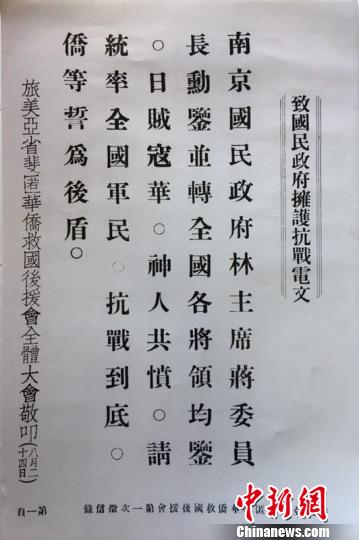 致國民政府擁護抗戰電文
南京國民政府林主席蔣委員
長勳鑒並轉全國各將領均鑒
。日賊寇華。神人共憤。請
統率全國軍民。抗戰到底。
僑等誓爲後盾。
旅美亞省斐匿華僑救國後援會全體大會敬叩(八月二十四日)
第一頁
華僑救國後援會第一次徵信錄
中新网
www.chinanews.com